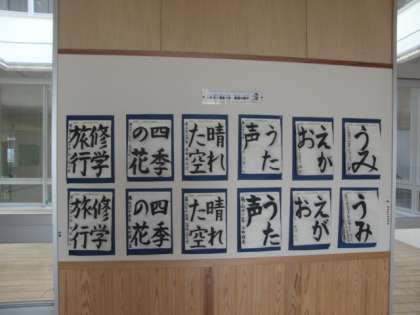 うみ
えが
お
うた
声
晴れ
た空
四季
の花
修学
旅行
うみ
えが
お
うた
声
晴れ
た空
四季
の花
修学
旅行